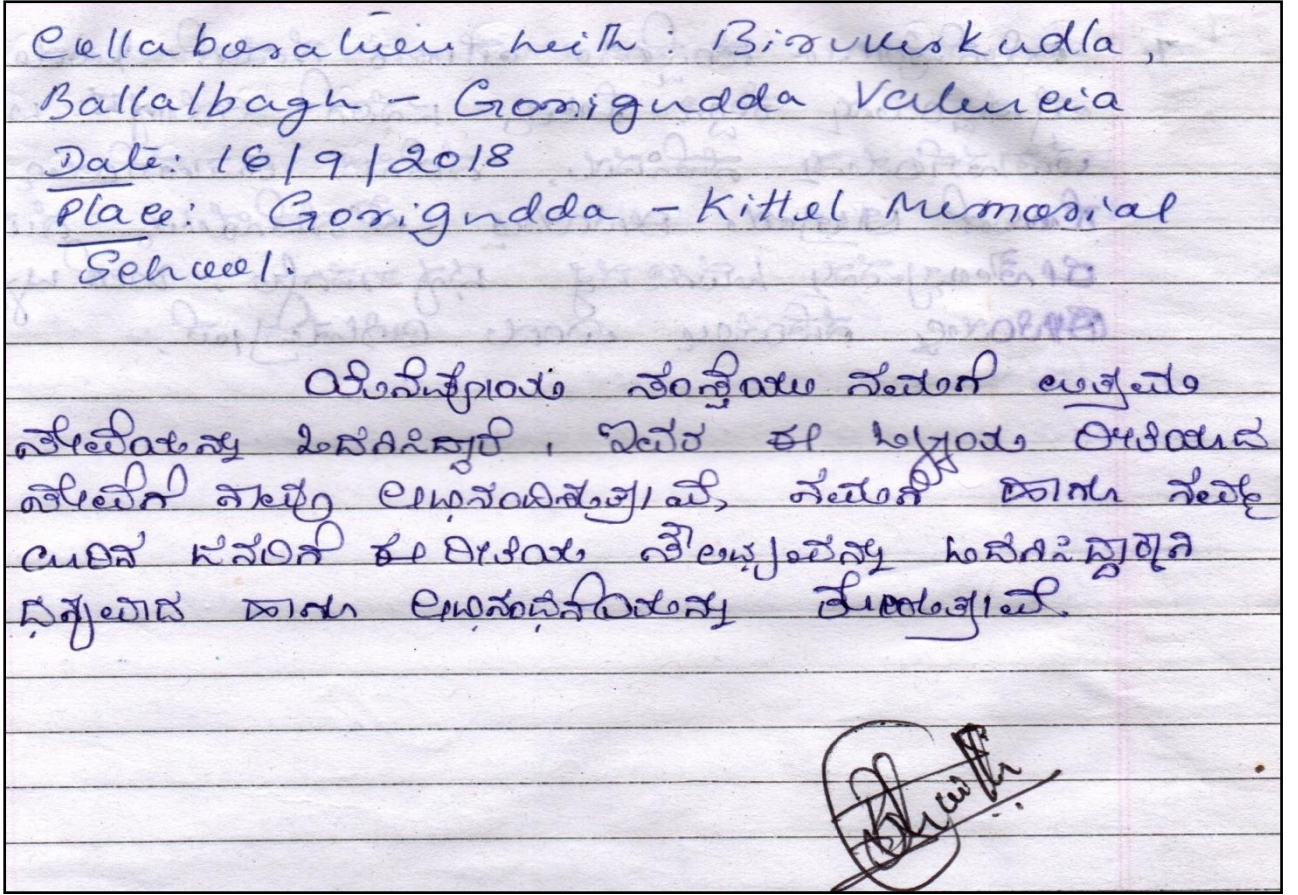 Collaboration with: Biruverkudla,
Ballalbagh - Gorigudda Valencia
Date: 16/9/2018
Place: Gorigudda - Kittel Memorial
School.
ಯೆನೆಪೋಯ ಸಂಸ್ಥೆಯು ನಮಗೆ ಉತ್ತಮ
ಸೇವೆಯನ್ನು ಒದಗಿಸಿದ್ದಾರೆ, ಇವರ ಈ ಒಳ್ಳೆಯ ರೀತಿಯಾದ
ಸೇವೆಗೆ ನಾವು ಅಭಿನಂದಿಸುತ್ತೇವೆ, ನಮಗೆ ಹಾಗೂ ನಮ್ಮ
ಊರಿನ ಜನರಿಗೆ ಈ ರೀತಿಯ ಸೌಲಭ್ಯವನ್ನು ಒದಗಿಸಿದ್ದಕ್ಕಾಗಿ
ಧನ್ಯವಾದ ಹಾಗೂ ಅಭಿನಂದನೆಯನ್ನು ತಿಳಿಸುತ್ತೇವೆ.